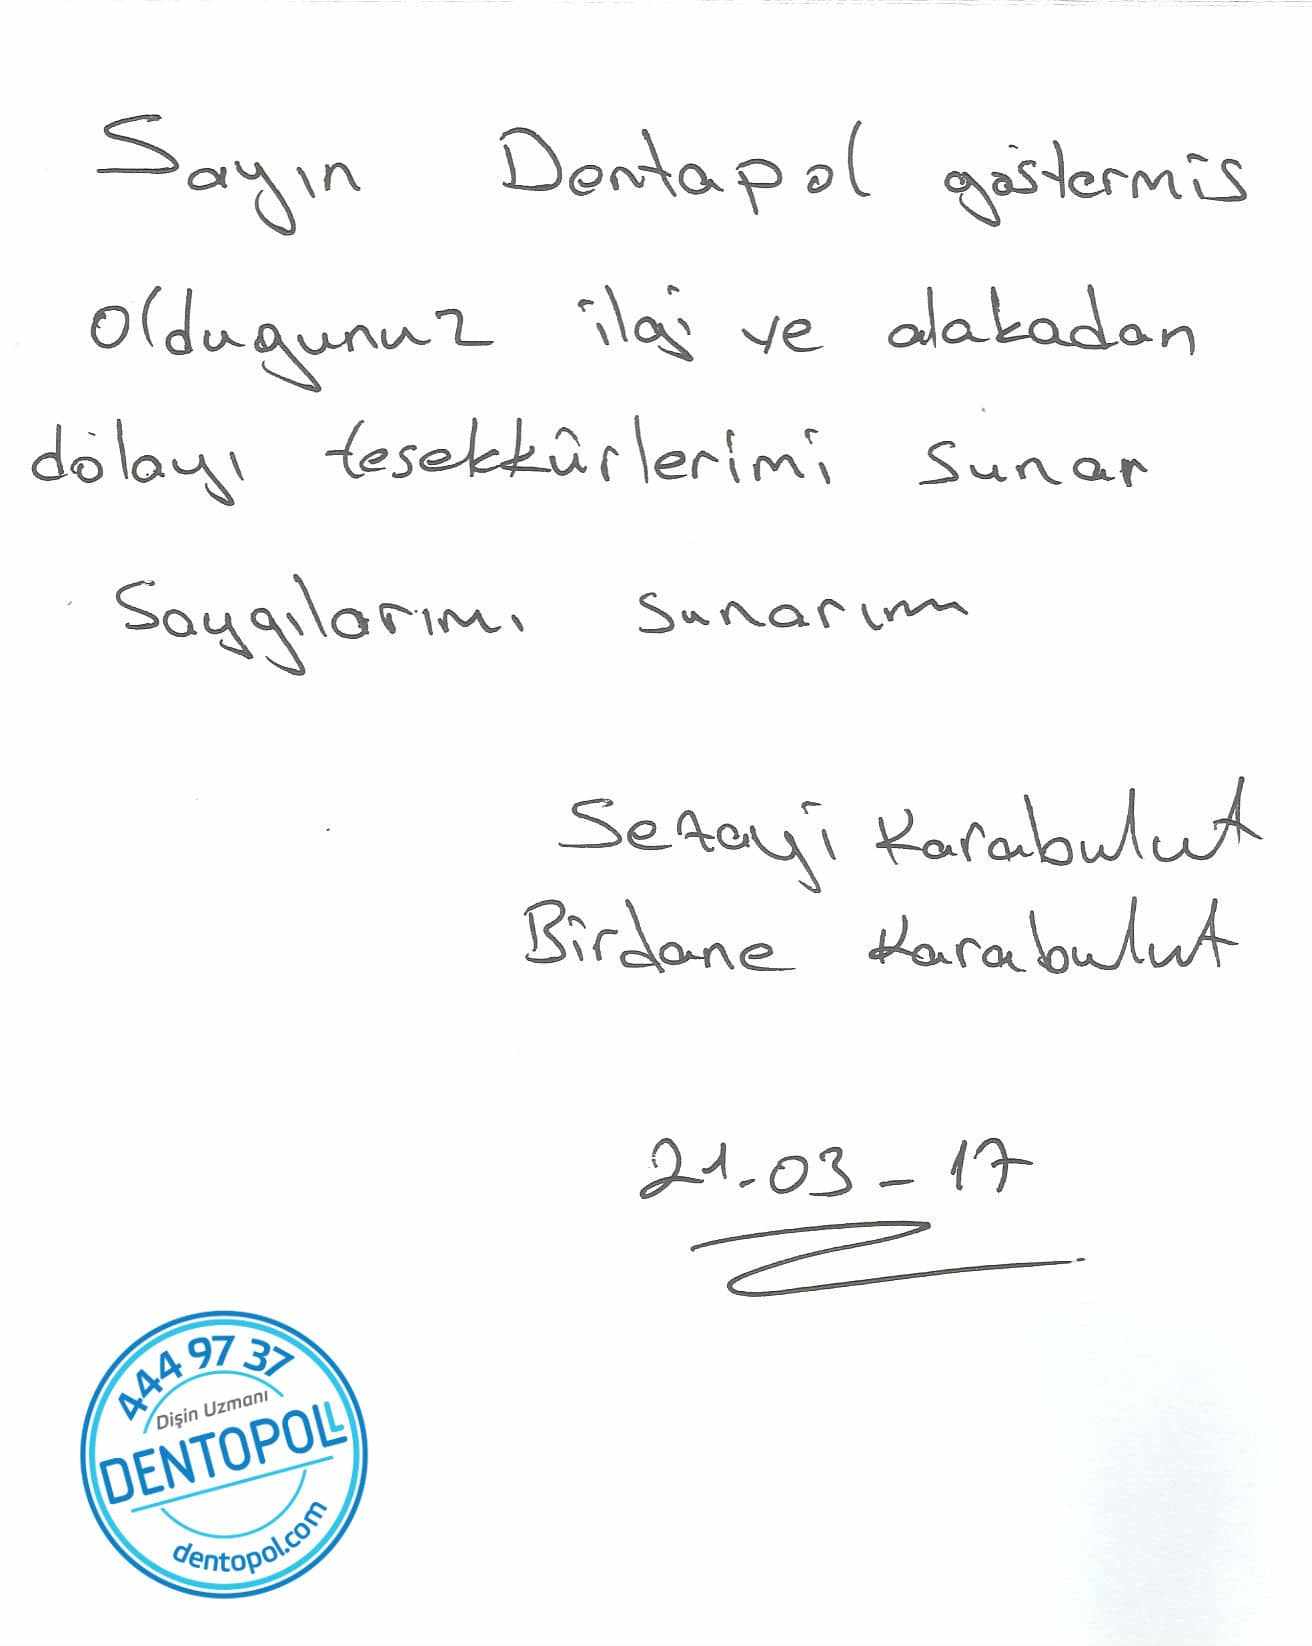 Sayın Dentapol göstermis
oldugunuz ilgi ve alakadan
dolayı tesekkürlerimi sunar
Saygılarımı sunarım
Sezayi Karabulut
Birdane Karabulut
21.03-17
444 97 37
Dişin Uzmanı
DENTOPOLL
dentopol.com